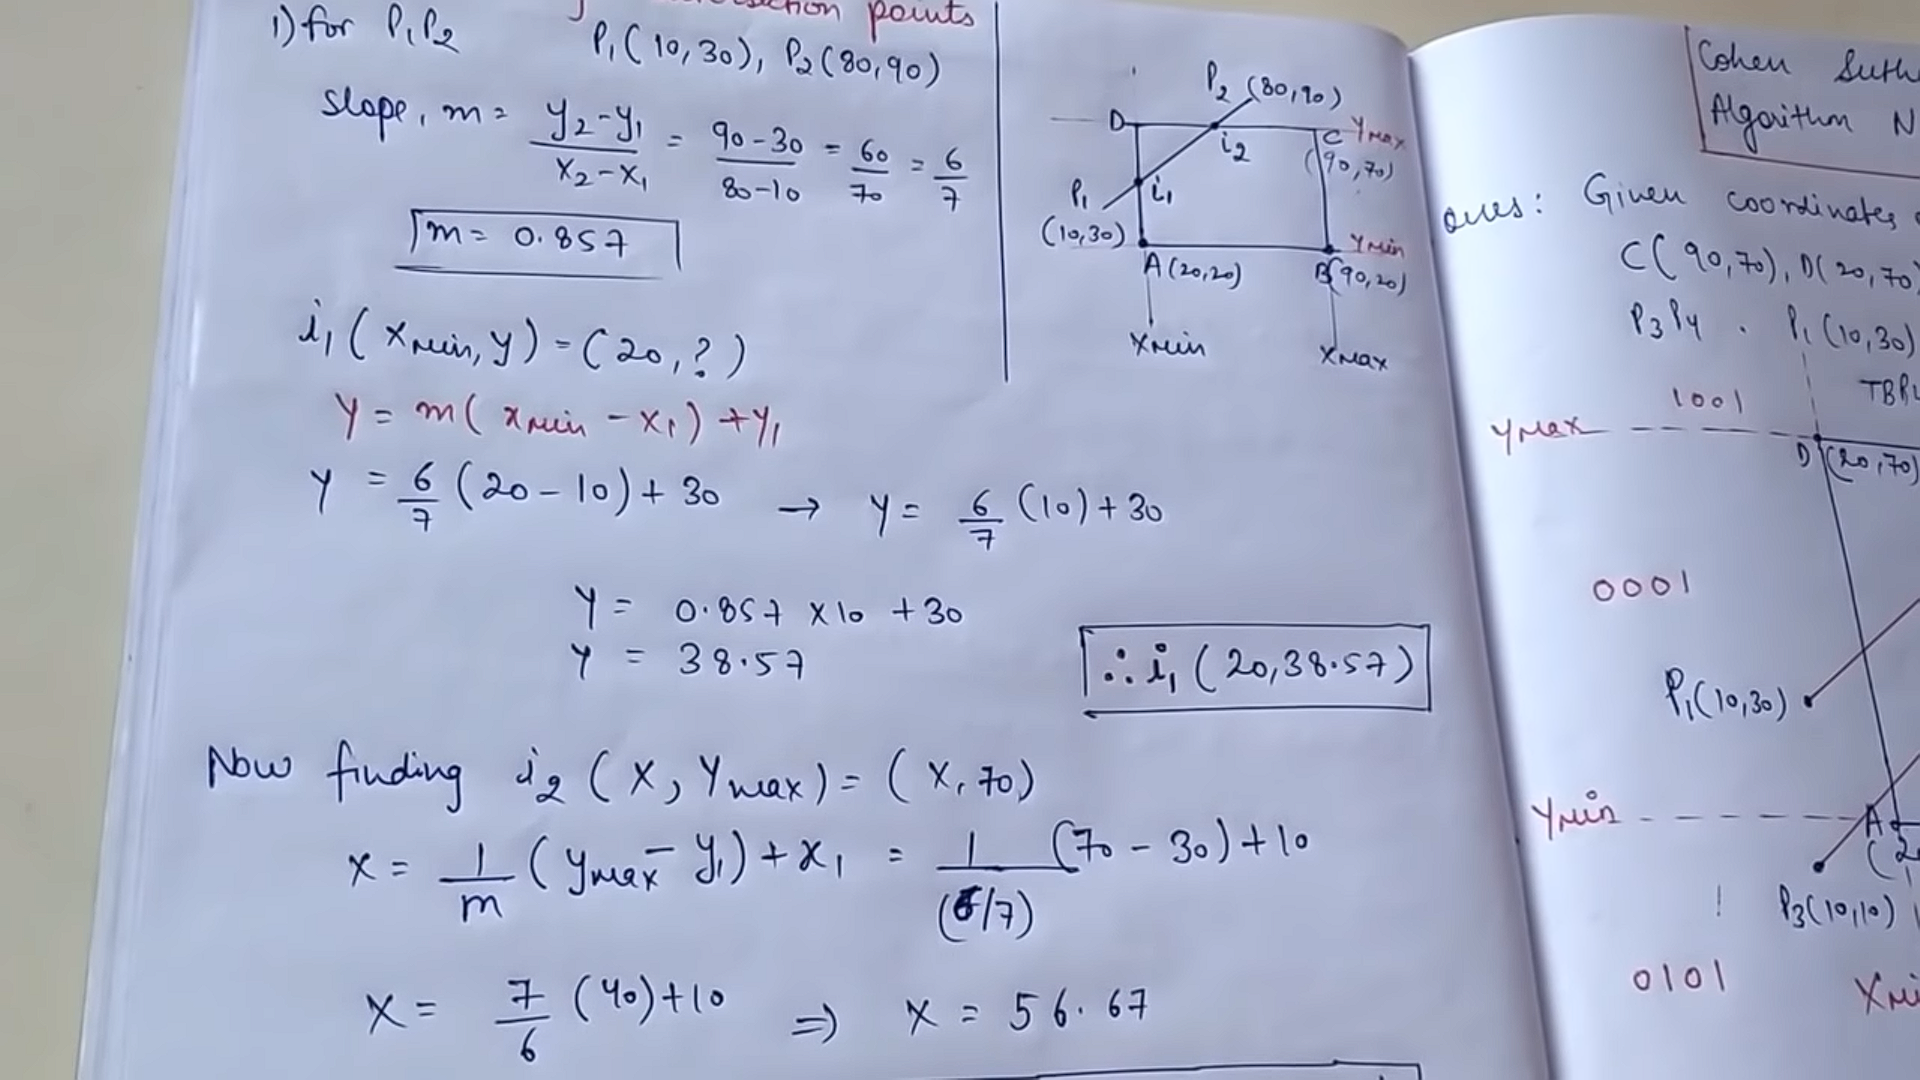 intersection points
1) for P₁P₂ P₁(10,30), P₂(80,90)
slope, m = y₂-y₁ / x₂-x₁ = 90-30 / 80-10 = 60/70 = 6/7
m = 0.857
i₁(xmin, y) = (20, ?)
y = m(xmin - x₁) + y₁
y = 6/7 (20-10) + 30 → y = 6/7 (10) + 30
y = 0.857 x 10 + 30
y = 38.57
∴ i₁ (20, 38.57)
Now finding i₂ (x, ymax) = (x, 70)
x = 1/m (ymax - y₁) + x₁ = 1/(6/7) (70-30) + 10
x = 7/6 (40) + 10 ⇒ x = 56.67
P₂ (80,90)
D
i₂
C
Ymax
(90,70)
P₁
i₁
(10,30)
Ymin
A (20,20)
B(90,20)
Xmin
Xmax
Cohen
Algorithm N
Ques: Given coordinates
C(90,70), D(20,70)
P₃P₄ . P₁(10,30)
1001
Ymax
D (20,70)
0001
P₁(10,30)
Ymin
A
P₃(10,10)
0101